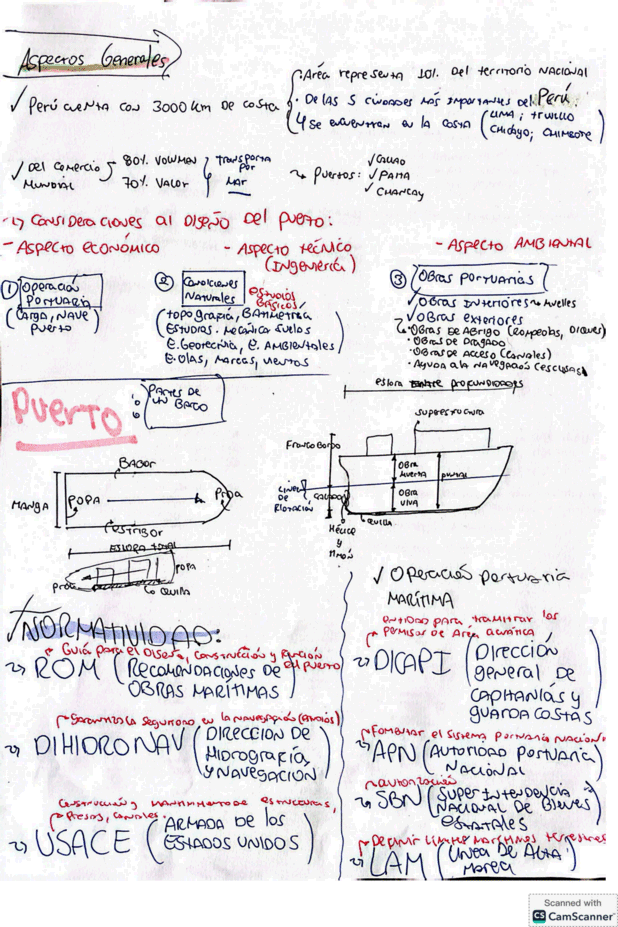 Aspectos Generales
✓ Perú cuenta con 3000 km de costa
· Área representa 10% del territorio nacional
· De las 5 ciudades más importantes del Perú
4 se encuentran en la costa (Lima; Trujillo
Chiclayo; Chimbote)
✓ Del comercio mundial
80% volumen
70% valor
transporta por mar
→ Puertos:
✓ Callao
✓ Paita
✓ Chancay
Consideraciones al diseño del puerto:
- Aspecto económico
- Aspecto técnico
(Ingeniería)
- Aspecto AMBIENTAL
① Operación Portuaria
(Carga, Nave
Puerto)
② Condiciones Naturales
Estudios Básicos
(topografía, Batimetría
Estudios. Mecánica suelos
E. Geotecnia, E. Ambientales
E. Olas, mareas, vientos)
③ Obras Portuarias
✓ Obras Interiores → Muelles
✓ Obras exteriores
· Obras de abrigo (rompeolas, diques)
· Obras de dragado
· Obras de Acceso (canales)
· Ayuda a la navegación (esclusas)
Puerto:
Partes de un barco
Babor
Manga
Popa
Proa
Estribor
Eslora total
Popa
Proa
Quilla
eslora entre profundidades
superestructura
Franco Bordo
Obra muerta
Puntal
Línea de flotación
Calado
Obra viva
Quilla
Hélice y timón
✓ Operación portuaria
MARÍTIMA
NORMATIVIDAD:
Guía para el diseño, construcción y
en puerto
→ ROM (Recomendaciones de
OBRAS MARÍTIMAS)
Garantiza la seguridad en la navegación
→ DIHIDRONAV (DIRECCION DE
Hidrografía
y NAVEGACIÓN)
Construcción y mantenimiento de estructuras,
Presas, canales.
→ USACE (ARMADA DE LOS
ESTADOS UNIDOS)
entidad para tramitar los
Permisos de Área acuática
→ DICAPI (Dirección
general de
CAPITANÍAS y
GUARDA COSTAS)
Fomentar el sistema Portuario Nacional
→ APN (Autoridad Portuaria
NACIONAL)
autorización
→ SBN (Super Intendencia
Nacional de Bienes
estatales)
Definir límites marítimos terrestres
→ LAM (Línea De Alta
Marea)
Scanned with
CS CamScanner